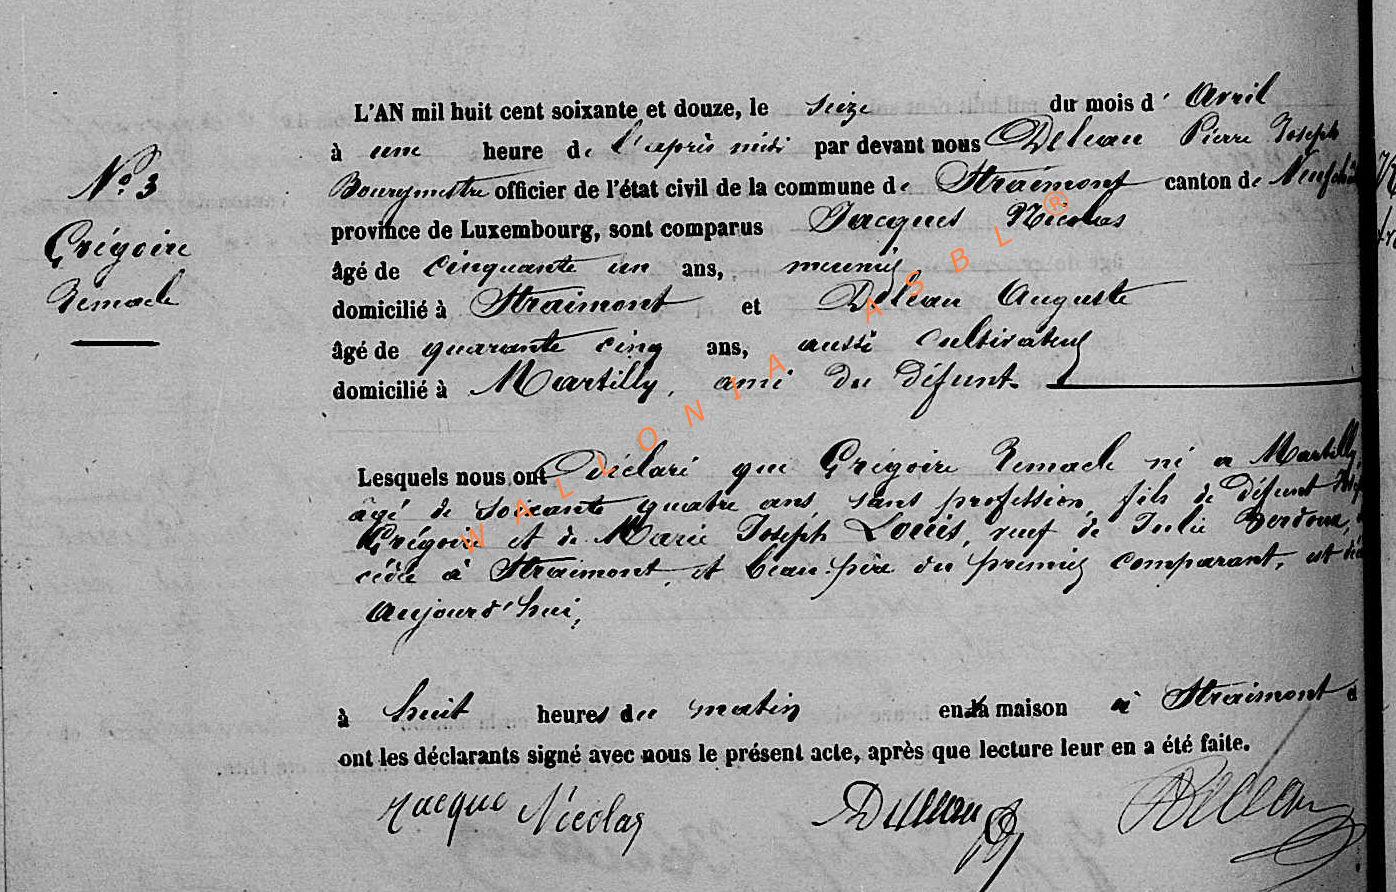 L'AN mil huit cent soixante et douze, le seize du mois d' Avril
à une heure de l'après midi par devant nous Déleau Pierre Joseph
Bourgmestre officier de l'état civil de la commune de Straimont canton de
province de Luxembourg, sont comparus Jacques Nicolas
N° 3
Grégoire
Remacle
âgé de cinquante un ans, meunier
domicilié à Straimont et Déleau Auguste
âgé de quarante cinq ans, aussi cultivateur
domicilié à Martilly, ami du défunt
Lesquels nous ont Déclaré que Grégoire Remacle né à Martilly
âgé de soixante quatre ans, sans profession, fils de défunt
Grégoire et de Marie Joseph Louis, veuf de Julie
cédée à Straimont, et beau-père du premier comparant, est
aujourd'hui,
à huit heures du matin en la maison à Straimont
ont les déclarants signé avec nous le présent acte, après que lecture leur en a été faite.
Jacque Nicolas Déleau Déleau
WALLONIA ASBL ®